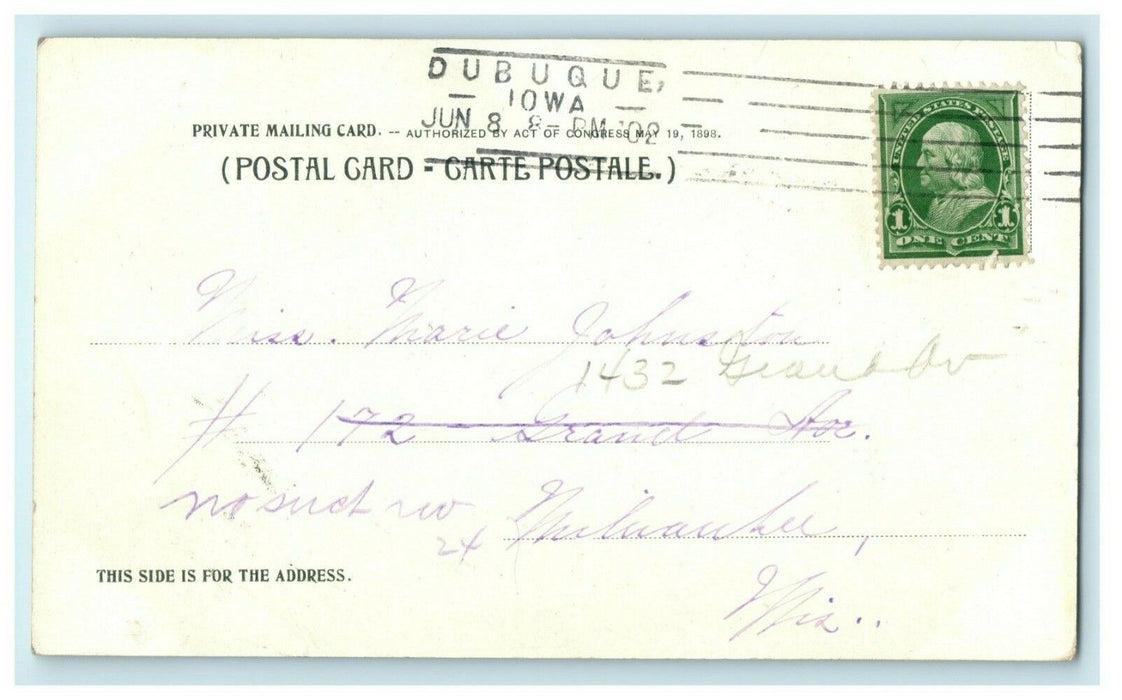 DUBUQUE,
— IOWA —
JUN 8 8 – PM '02
PRIVATE MAILING CARD. -- AUTHORIZED BY ACT OF CONGRESS MAY 19, 1898.
(POSTAL CARD = CARTE POSTALE.)
UNITED STATES POSTAGE
1 1
ONE CENT
Miss. Marie Johnston
1432 Grand Av
# 172 - Grand Ave.
no such no
24
Milwaukee,
Wis..
THIS SIDE IS FOR THE ADDRESS.